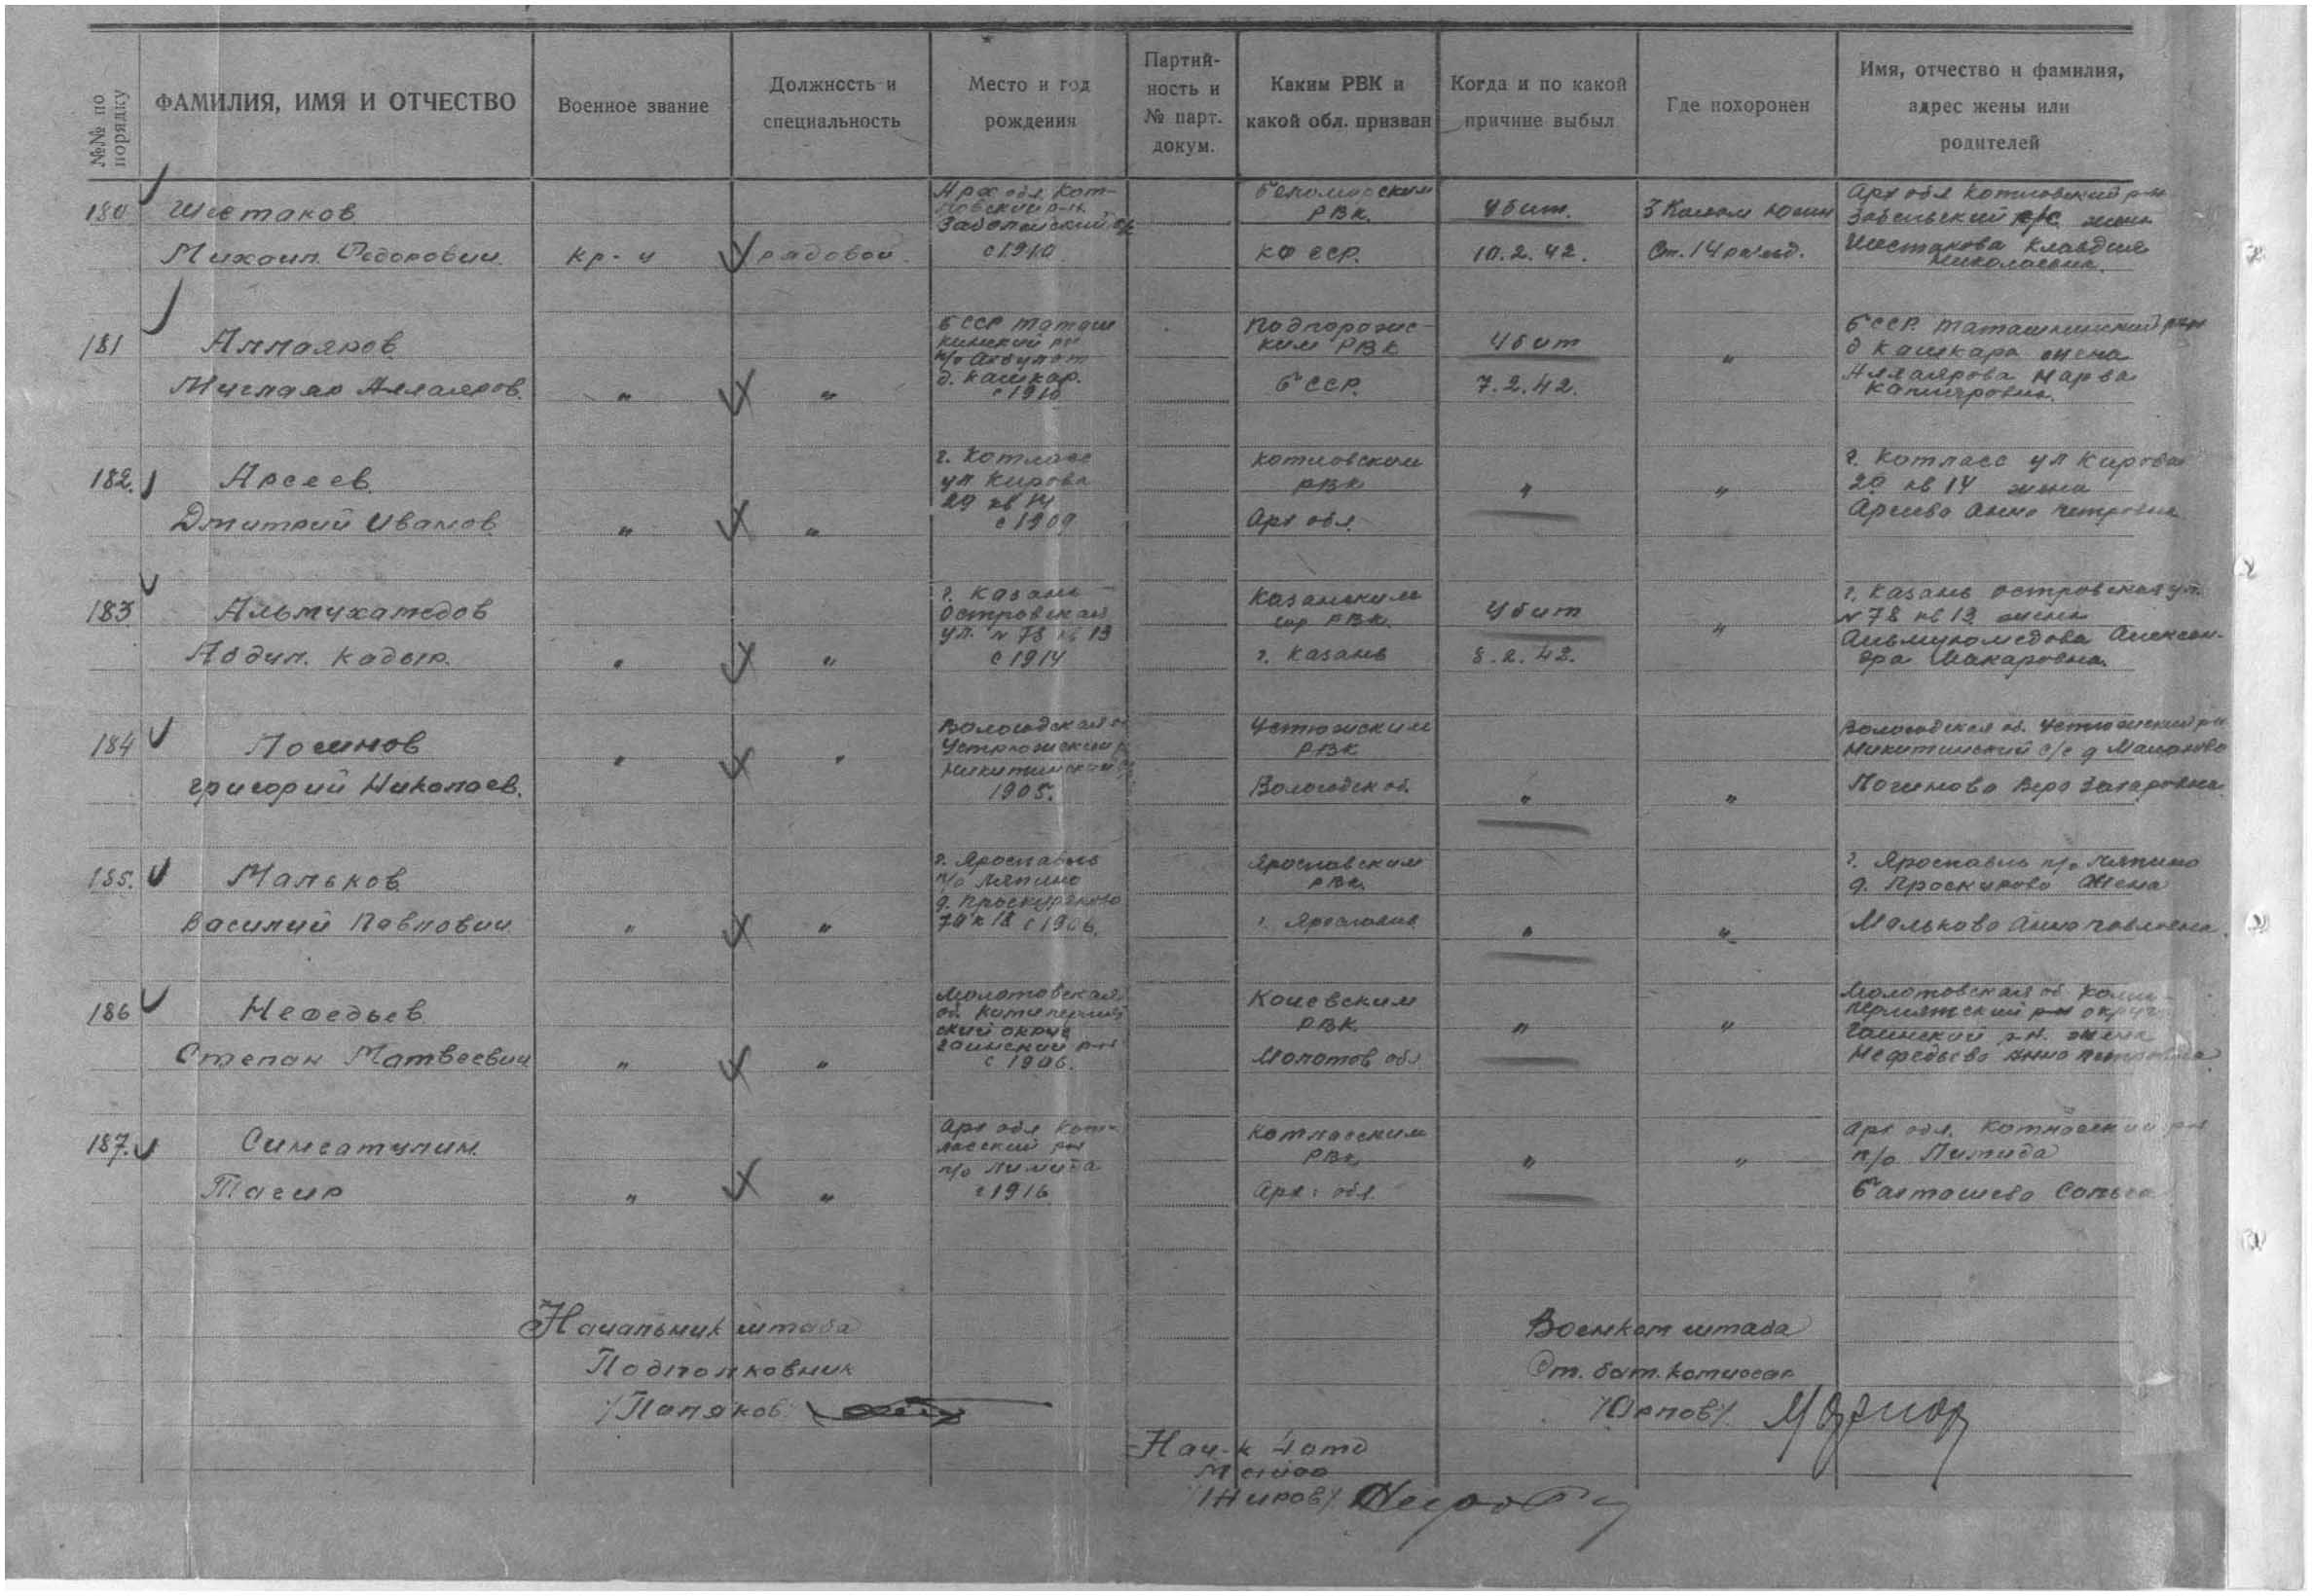 №№ по порядку
ФАМИЛИЯ, ИМЯ И ОТЧЕСТВО
Военное звание
Должность и специальность
Место и год рождения
Партийность и № парт. докум.
Каким РВК и какой обл. призван
Когда и по какой причине выбыл
Где похоронен
Имя, отчество и фамилия, адрес жены или родителей
180 Шестаков
Михаил Федорович
кр-ц
рядовой
Арх обл. Кот-
с 1910
Беломорским
РВК.
КФ ССР.
Убит.
10.2.42.
Ст. 14 раз'езд.
Арх обл Котловский р-н
Шестакова Клавдия
Николаевна.
181 Аллаяров
Аллаяров.
"
"
БССР Таташ
кинский рн
д. Кашкар.
с 1910
Подпорожс-
ким РВК
БССР.
Убит
7.2.42.
"
БССР. Таташлинский р-н
д Кашкара жена
Аллаярова Марва
182. Арсеев
Дмитрий Иванов.
"
"
г. Котласс
ул Кирова
29 кв 14
с 1909
Котловским
РВК
Арх обл.
"
"
г. Котласс ул Кирова
29 кв 14 жена
Анна Петровна
183 Альмухамедов
Абдул. Кадыр.
"
"
г. Казань
Островская
ул. № 78 кв 13
с 1914
Казанским
гор РВК.
г. Казань
Убит
8.2.42.
"
г. Казань Островская ул.
№ 78 кв 13 жена
Альмухомедова Алексан-
дра Макаровна.
184 Логинов
Григорий Николаев.
"
"
Вологодская о
Устюжский р
Никитинский с/с
1905.
Устюжским
РВК
Вологодск об.
"
"
Вологодская об. Устюжский р-н
Никитинский с/с д
Логинова Вера Захаровна
185. Мальков
Василий Павлович
"
"
г. Ярославль
п/о Ляпино
с 1906.
Ярославским
РВК.
г. Ярославль
"
"
г. Ярославль п/о Ляпино
д. Проскурово Жена
Малькова Анна Павловна.
186 Нефедьев
Степан Матвеевич
"
"
Молотовская
об. Комипермят
ский округ
Гаинский р-н
с 1906.
Кочевским
РВК
Молотов обл
"
"
Молотовская об Коми-
пермятский округ
Гаинский р-н. жена
Нефедьева Анна Петровна
187. Синсатулин.
Тагир
"
"
Арх обл Кот-
ласский рн
п/о Лимида
с 1916
Котласским
РВК
Арх. обл.
"
"
Арх обл. Котласский р-н
п/о Лимида
Начальник штаба
Подполковник
/Папяков/
Военком штаба
Ст. бат. комиссар
/Орлов/
Нач-к 4 отд
Майор
/Жиров/